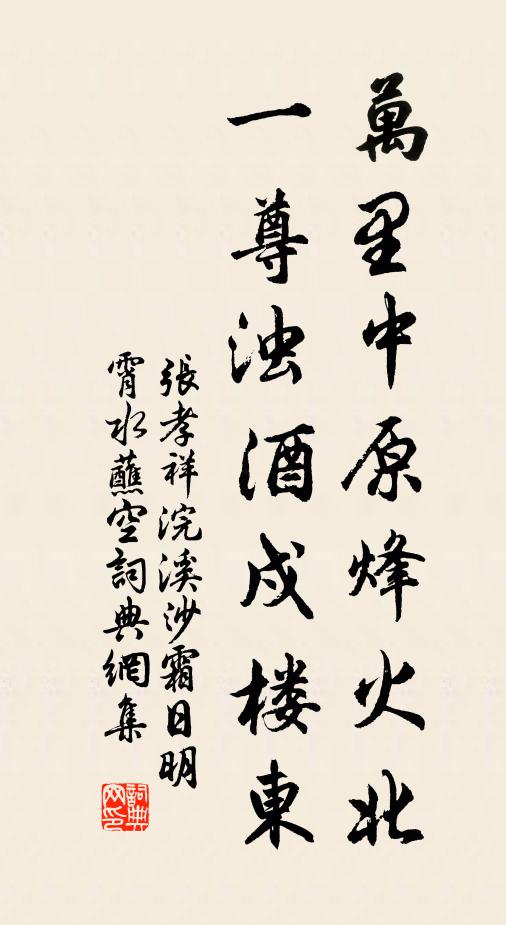 萬里中原烽火北
一尊浊酒戍楼東
張孝祥浣溪沙霜日明
霄水蘸空詞典網集
詞典网印